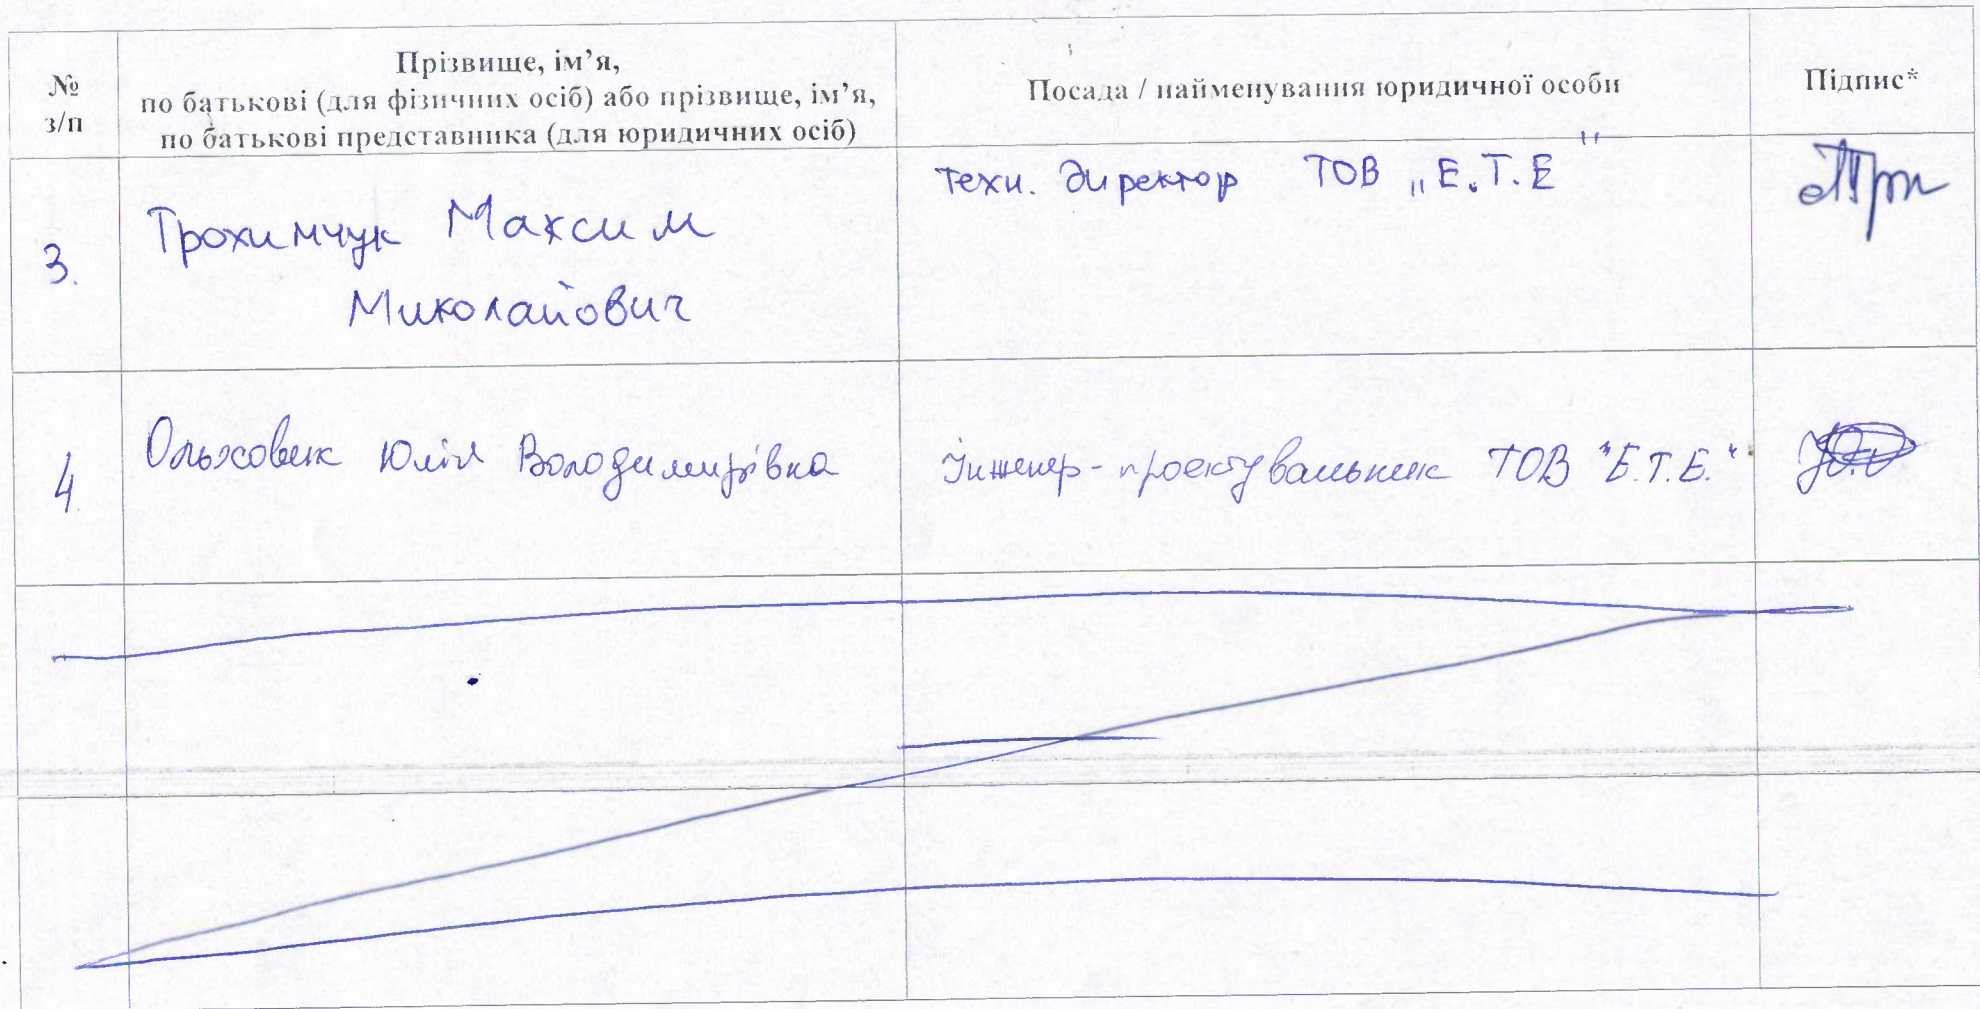 №
з/п
Прізвище, ім’я,
по батькові (для фізичних осіб) або прізвище, ім’я,
по батькові представника (для юридичних осіб)
Посада / найменування юридичної особи
Підпис*
3.
Трохимчук Максим
Миколайович
техн. директор ТОВ „Е.Т.Е"
4.
Ольховик Юлія Володимирівна
Інженер-проектувальник ТОВ "Е.Т.Е."